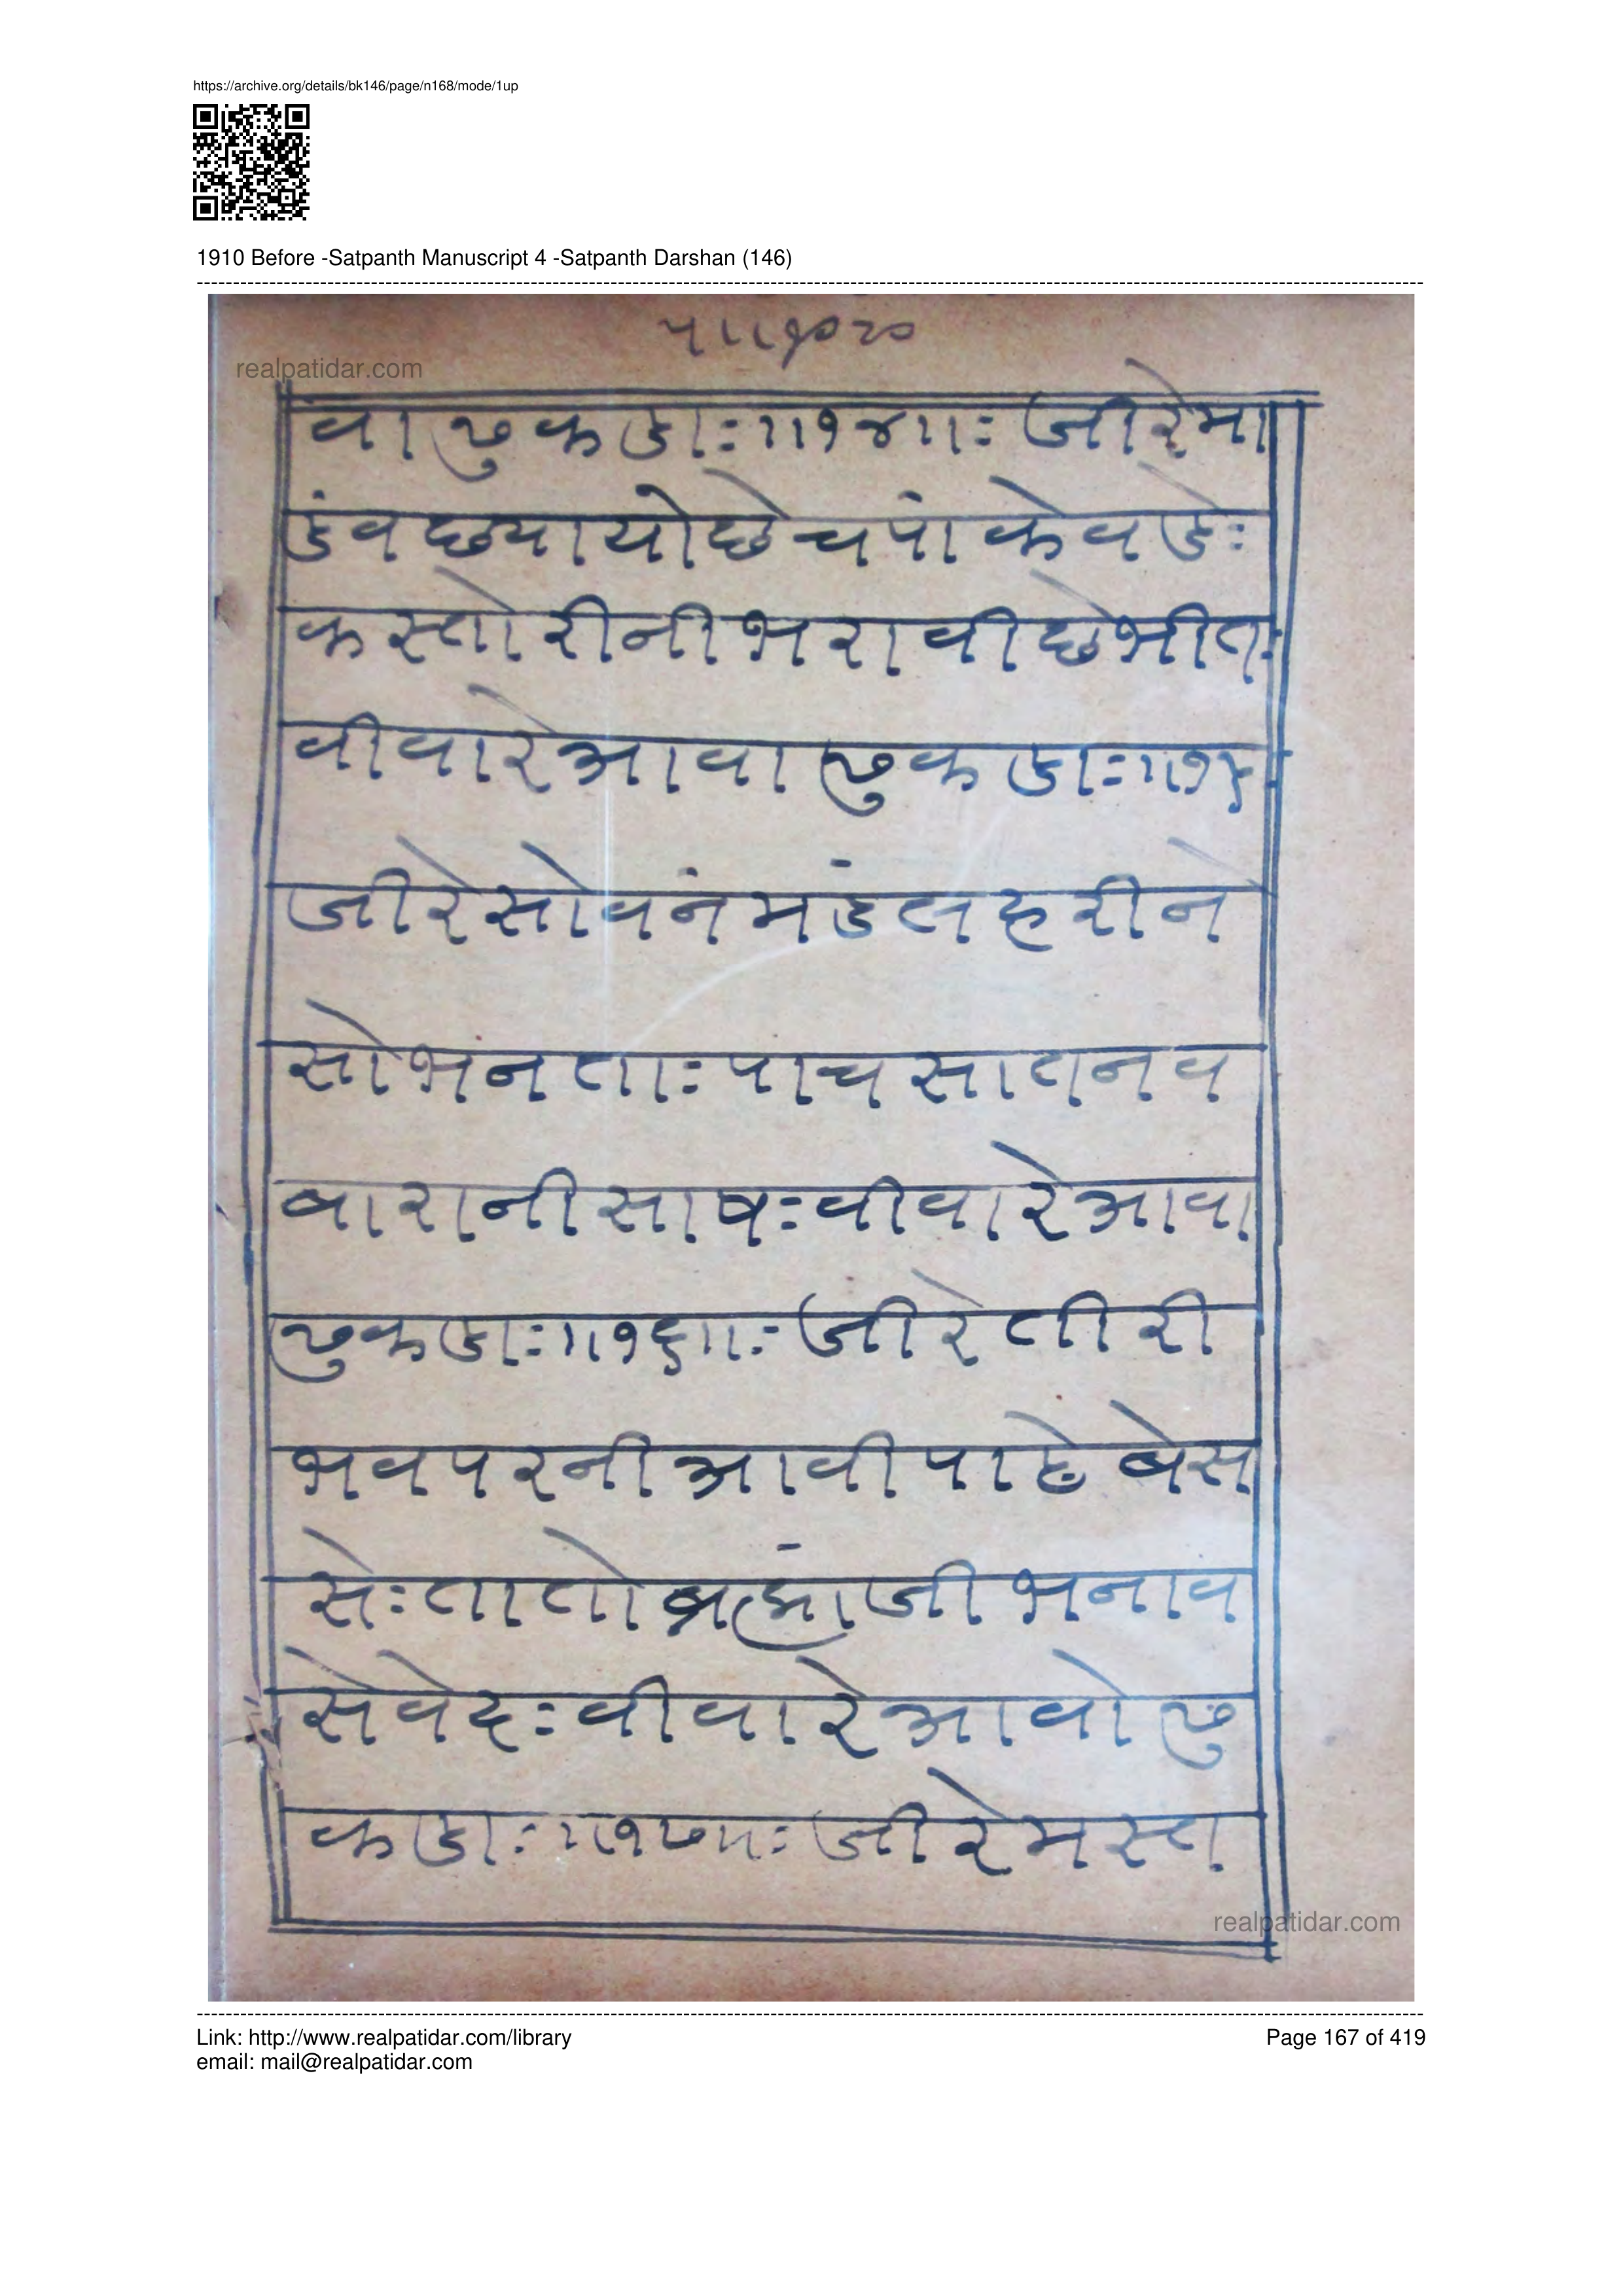 https://archive.org/details/bk146/page/n168/mode/1up
1910 Before -Satpanth Manuscript 4 -Satpanth Darshan (146)
realpatidar.com
वा ढुकडाः॥१४॥ः जीरेमा
डंवछयायोछेचपांकेवडेः
कस्तोरीनीभरावीछेभीतः
वीवारेआवा ढुकडाः॥१५
जीरेसोवनंमंडलहरीने
सोभनताः पाचसातनव
बारानीसाषः वीवारेआवा
ढुकडाः॥१६॥ः जीरेतीरी
भवपरनीआवीपाहेबेस
सेः तातोब्रह्मांजीभनाव
सेवेदः वीवारेआवोढु
कडाः॥१७॥ः जीरेमस्त
realpatidar.com
Link: http://www.realpatidar.com/library
email: mail@realpatidar.com
Page 167 of 419